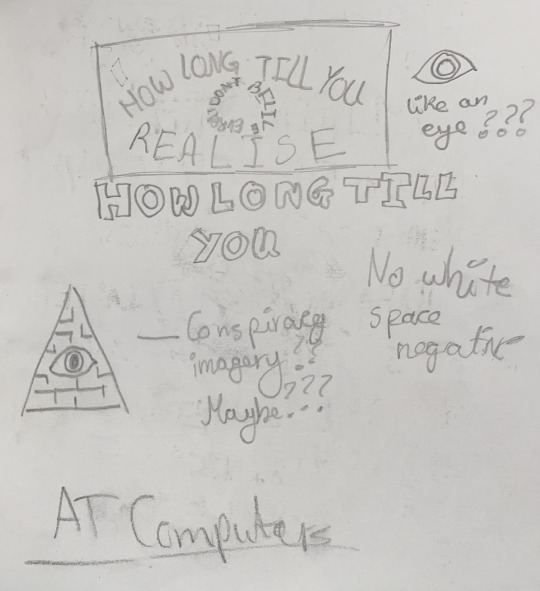 HOW LONG TILL YOU
DON'T BELIE
REALISE
like an
eye???
HOW LONG TILL
YOU
No white
space
negative
Conspiracy
imagery??
Maybe...???
AT Computers